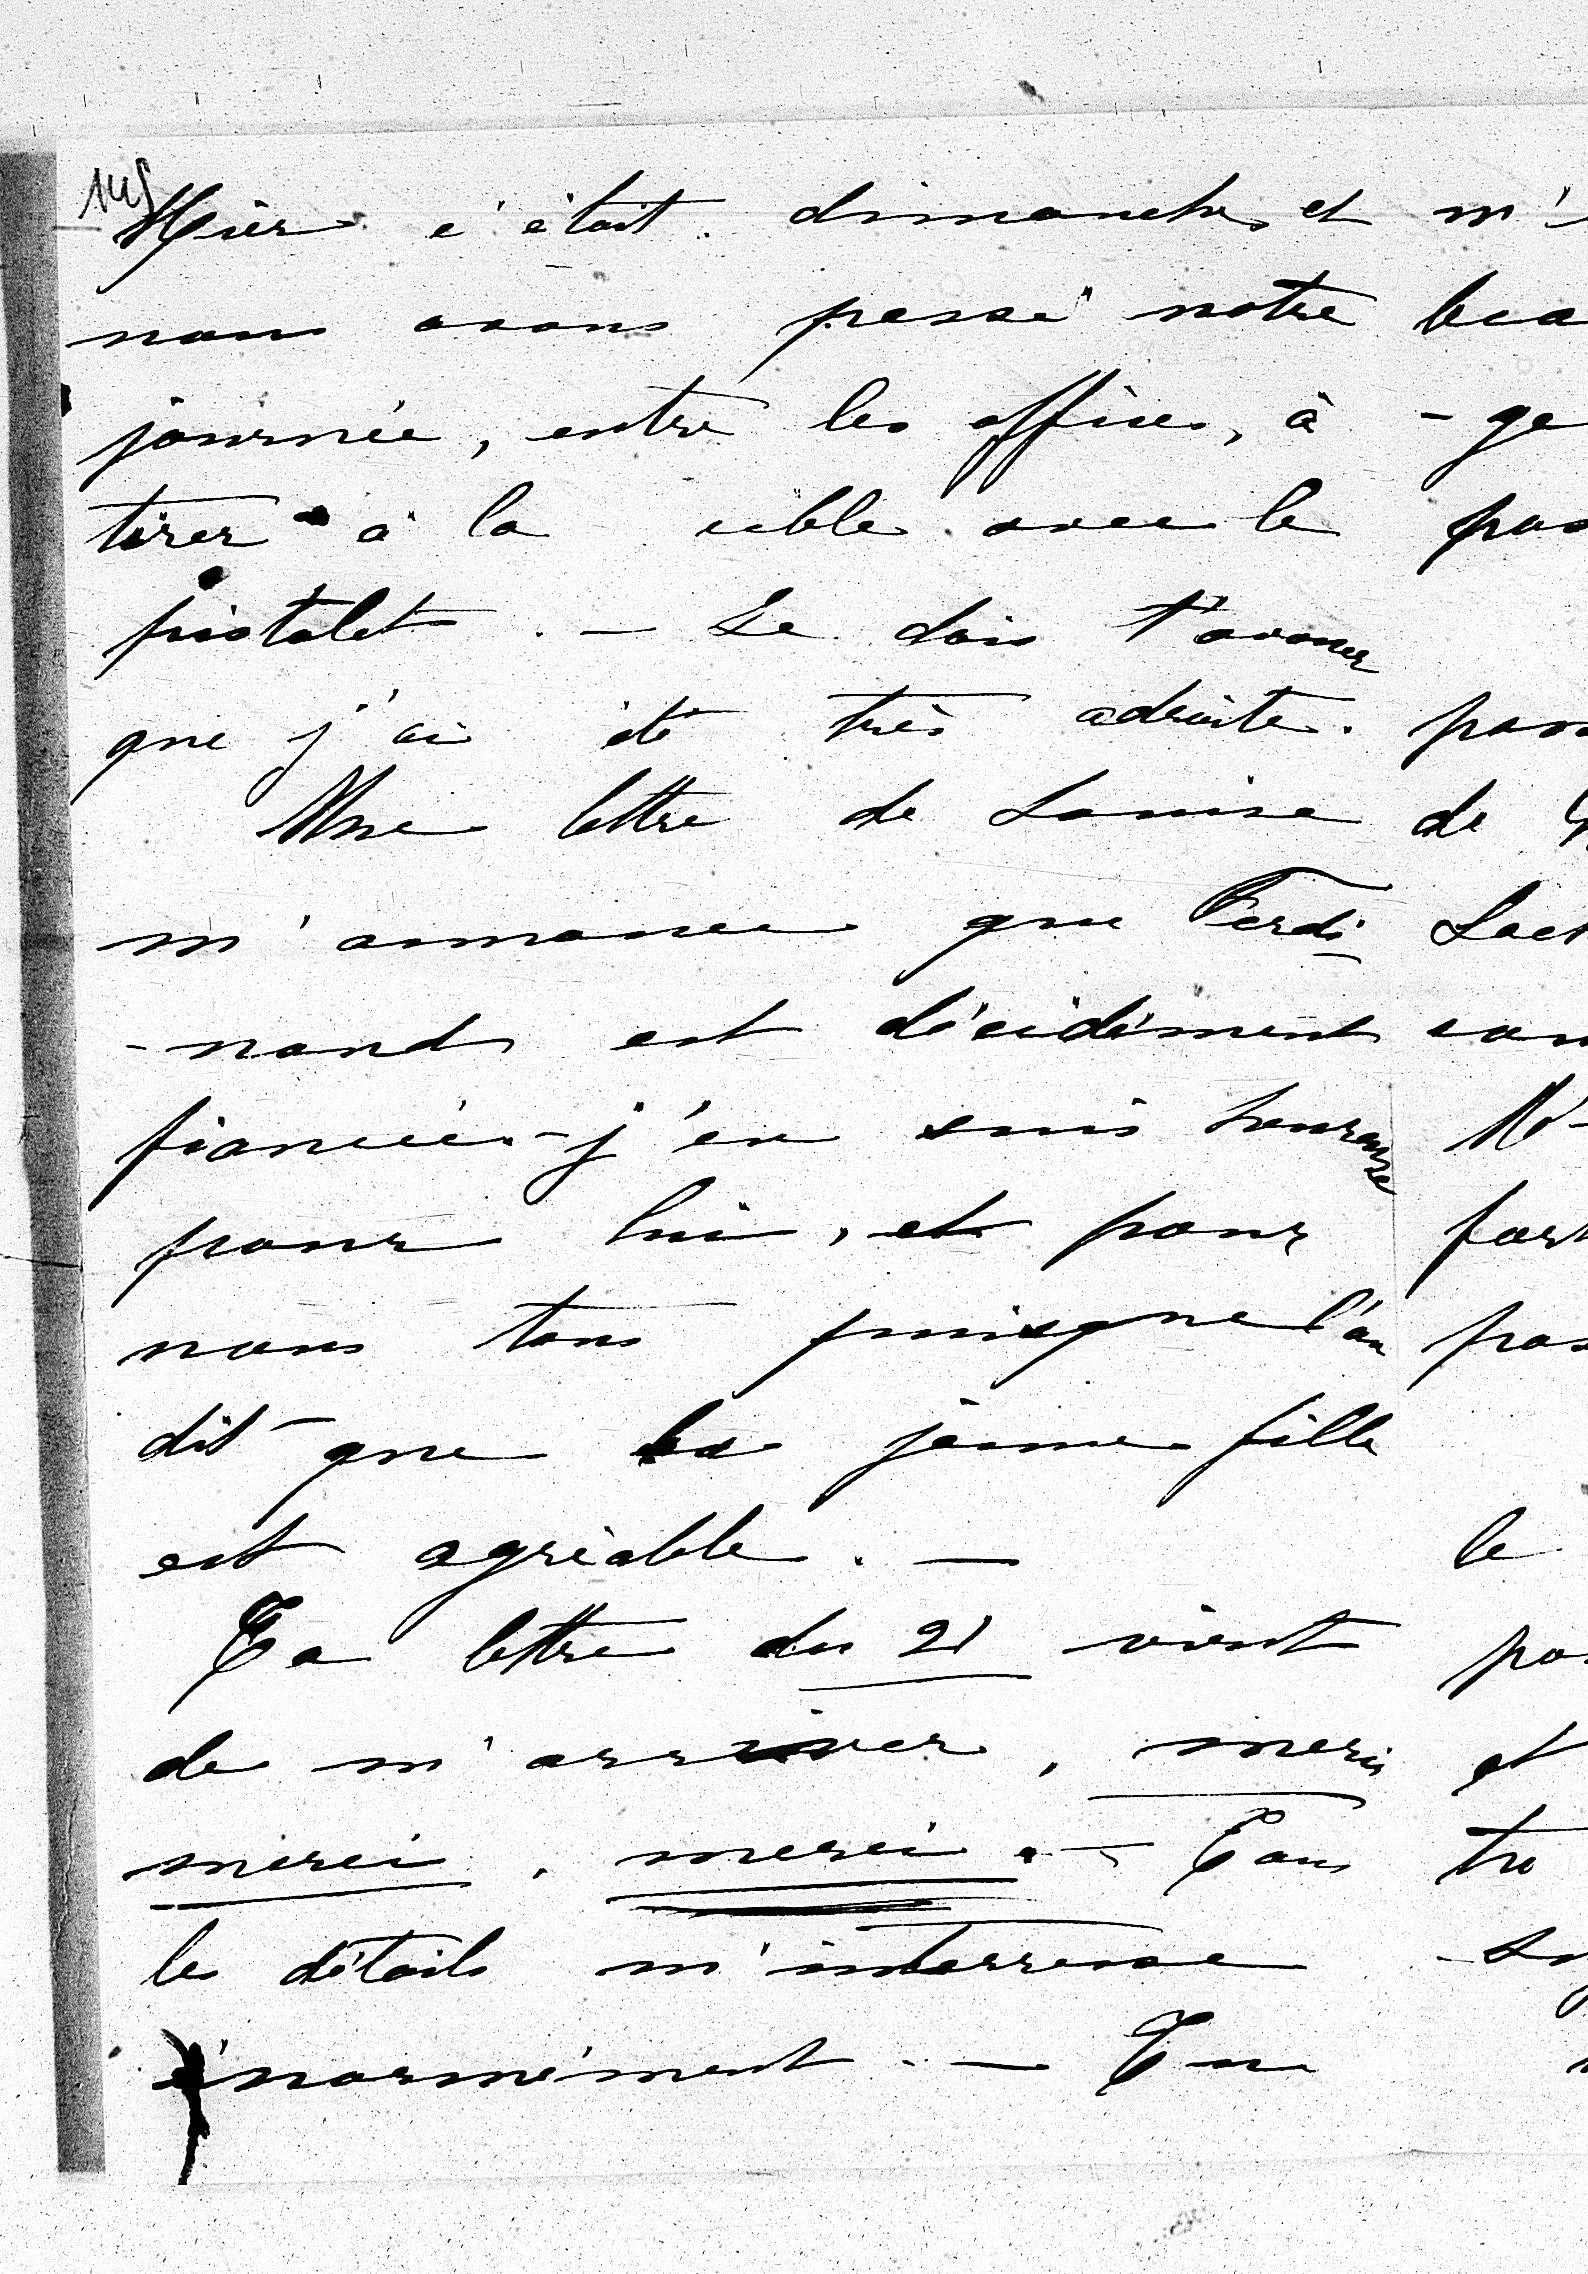 145
Hier c'était dimanche et
nous avons passé notre
journée, entre les offices, à
tirer à la cible avec le
pistolet. — Je dois t'avouer
que j'ai été très adroite.
Une lettre de Louise
m'annonce que Ferdi
-nand est décidément
fiancé - j'en suis heureuse
pour lui, et pour
nous tous puisque l'on
dit que la jeune fille
est agréable. —
Ta lettre du 21 vient
de m'arriver, merci
merci, merci. — Tous
les détails m'interresse
énormément. — Tu
m'
-ge
de
le
et